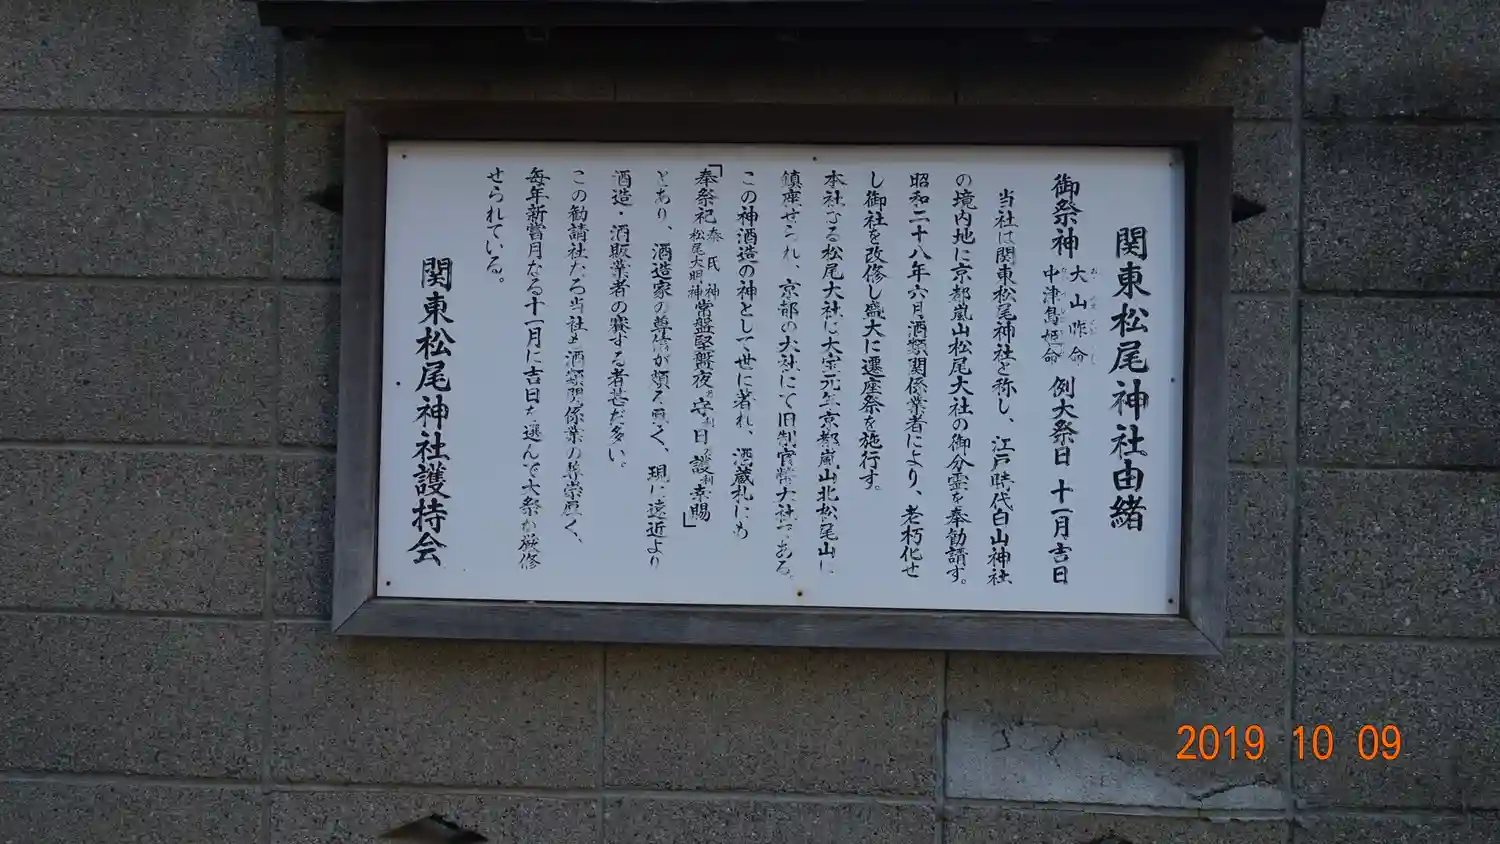 関東松尾神社由緒
御祭神 大山咋命 中津島姫命 例大祭日 十一月吉日
当社は関東松尾神社と称し、江戸時代白山神社
の境内地に京都嵐山松尾大社の御分霊を奉勧請す。
昭和二十八年六月酒類関係業者により、老朽化せ
し御社を改修し盛大に遷座祭を施行す。
本社なる松尾大社は大宝元年京都嵐山北松尾山に
鎮座せられ、京都の大社にて旧制官幣大社である。
この神酒造の神として世に著れ、酒蔵札にも
「奉祭祀 秦氏神 松尾大明神 常盤堅盤夜守日護幸賜」
とあり、酒造家の尊信が頗る厚く、現に遠近より
酒造・酒販業者の賽する者甚だ多い。
この勧請社たる当社も酒類関係業の尊崇厚く、
毎年新嘗月なる十一月に吉日を選んで大祭が厳修
せられている。
関東松尾神社護持会
2019 10 09